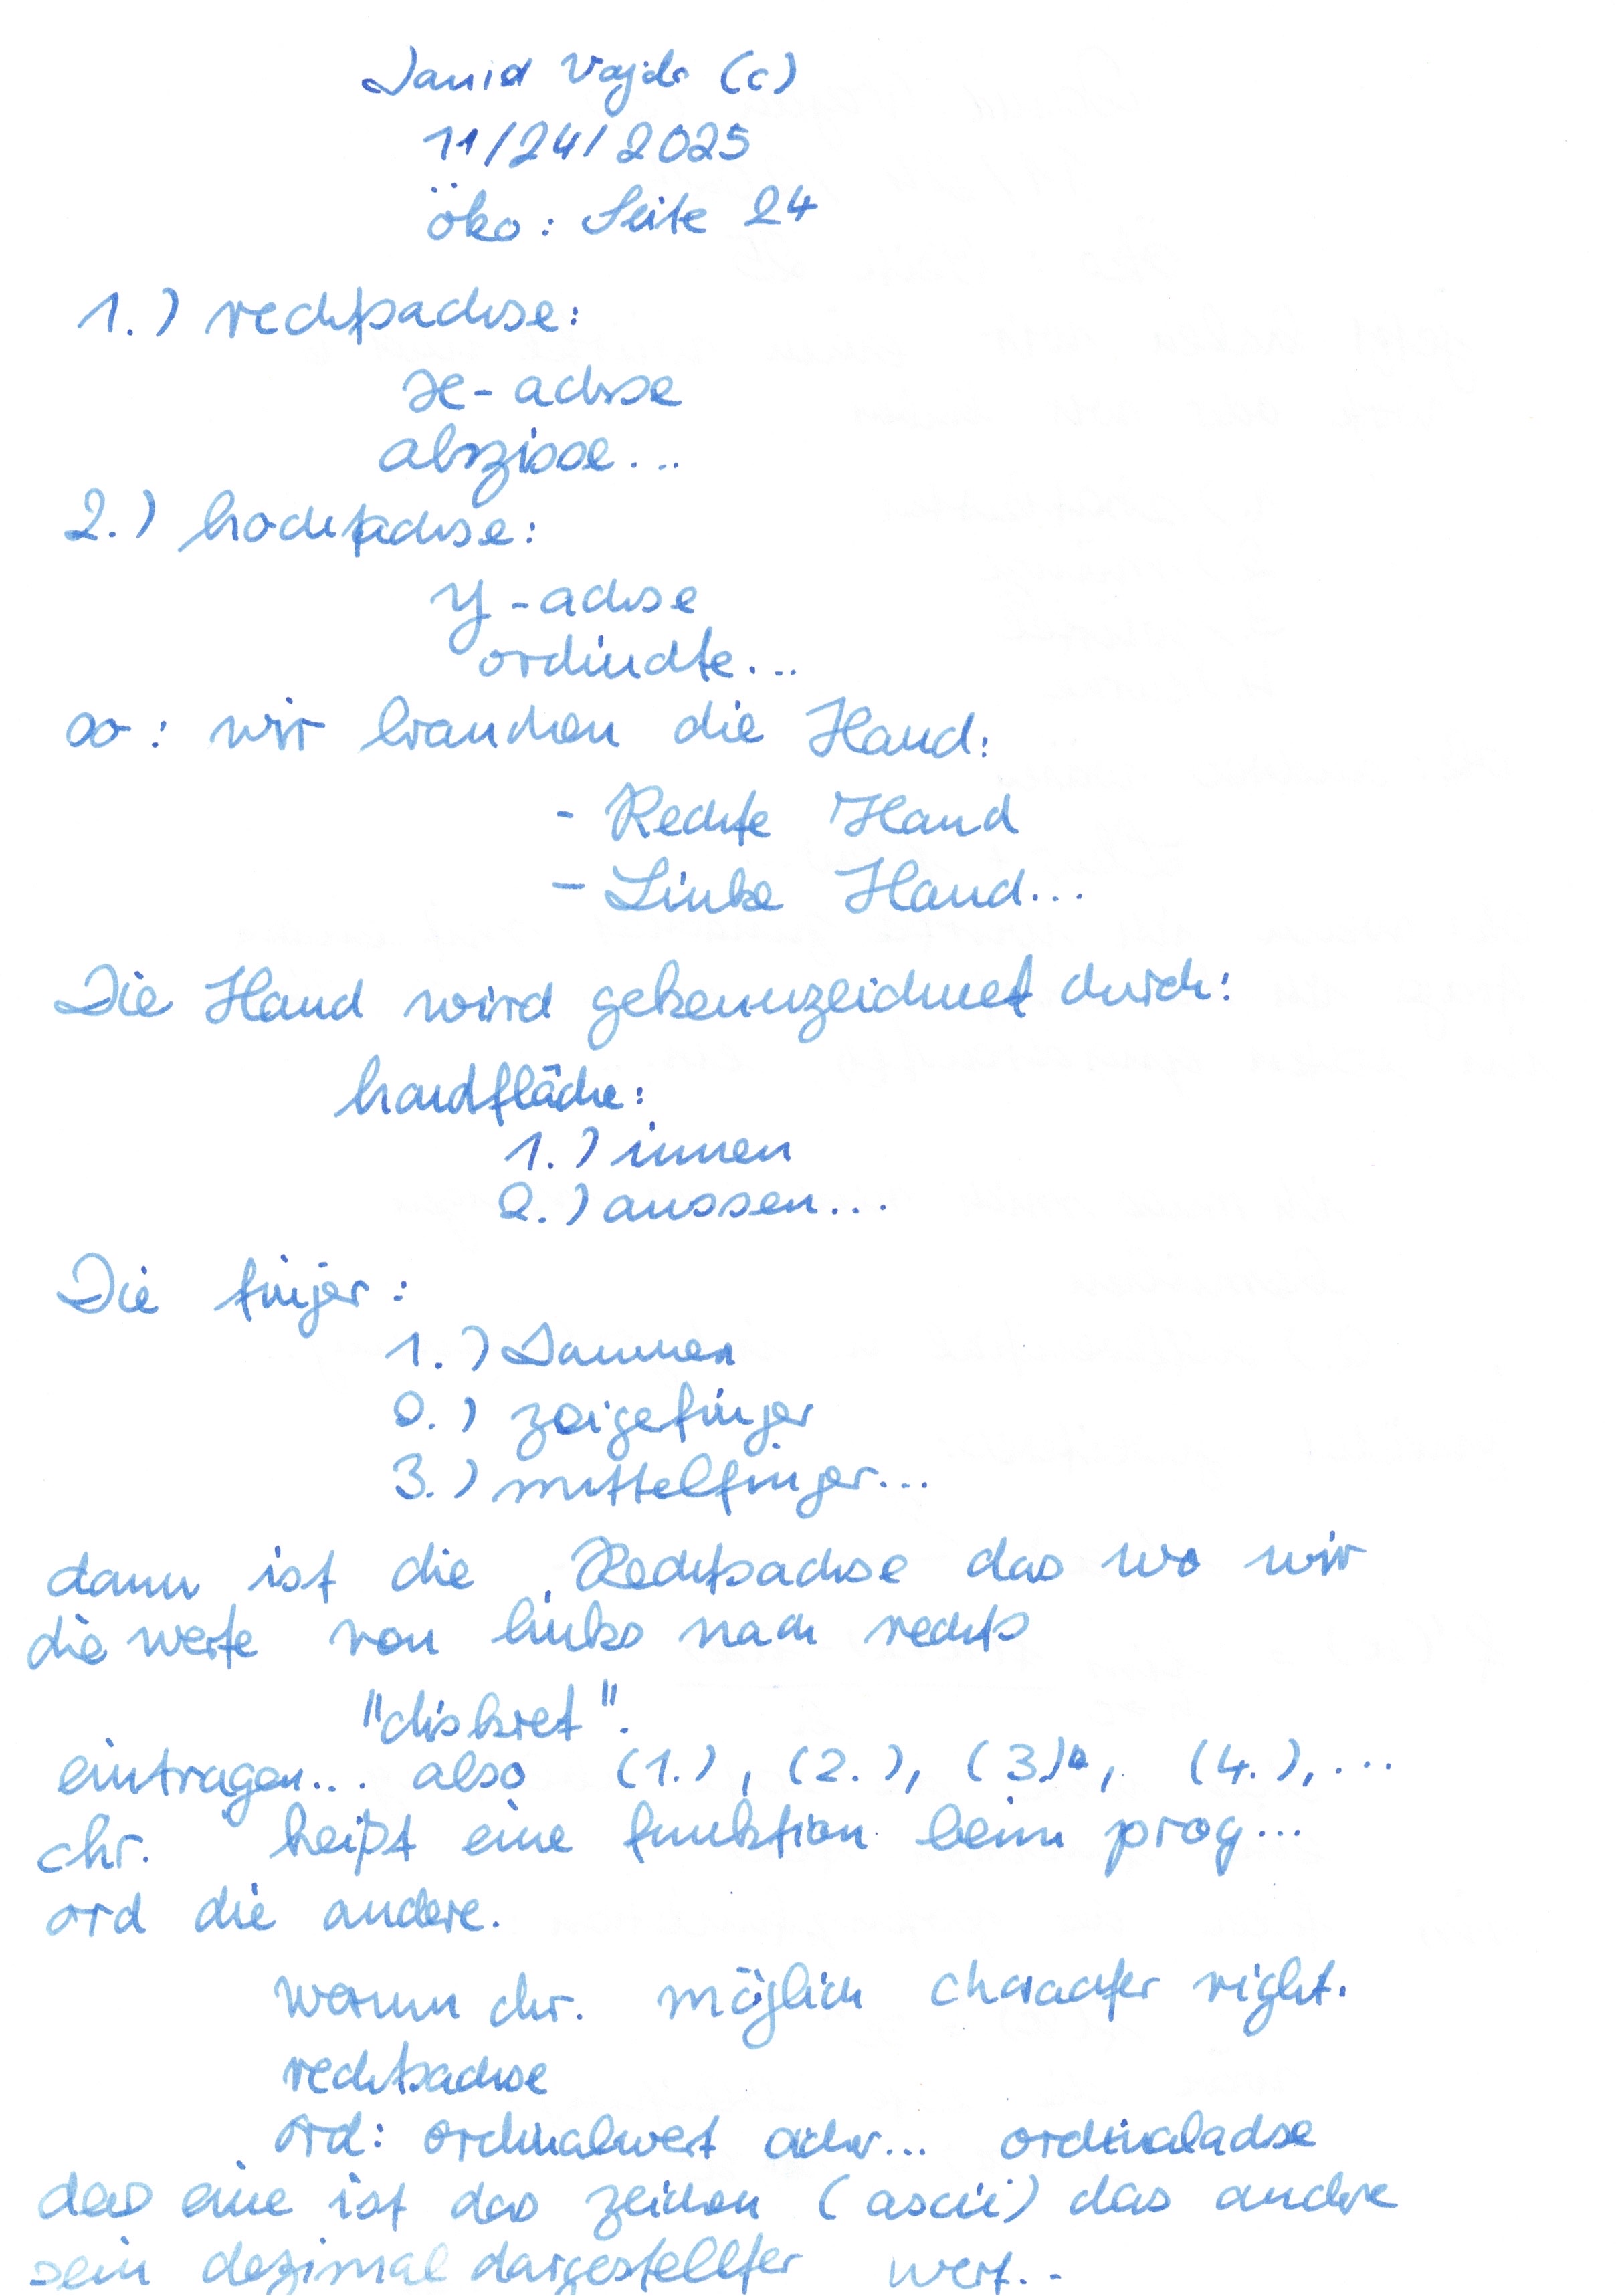 David Vajda (c)
11/24/2025
öko: Seite 24
1.) rechtsachse:
x-achse
abszisse...
2.) hochachse:
y-achse
ordindte...
so: wir brauchen die Hand:
- Rechte Hand
- Linke Hand...
Die Hand wird gekennzeichnet durch:
handfläche:
1.) innen
2.) aussen...
Die finger:
1.) Daumen
2.) zeigefinger
3.) mittelfinger...
dann ist die Rechtsachse das wo wir
die werte von links nach rechts
"diskret".
eintragen... also (1.), (2.), (3.), (4.),...
chr. heißt eine funktion beim prog...
ord die andere.
wenn chr. möglich right.
rechtsachse
ord: ordinalwert ordinalachse
das eine ist das zeichen (ascii) das andre
sein dezimal dargestellter wert...